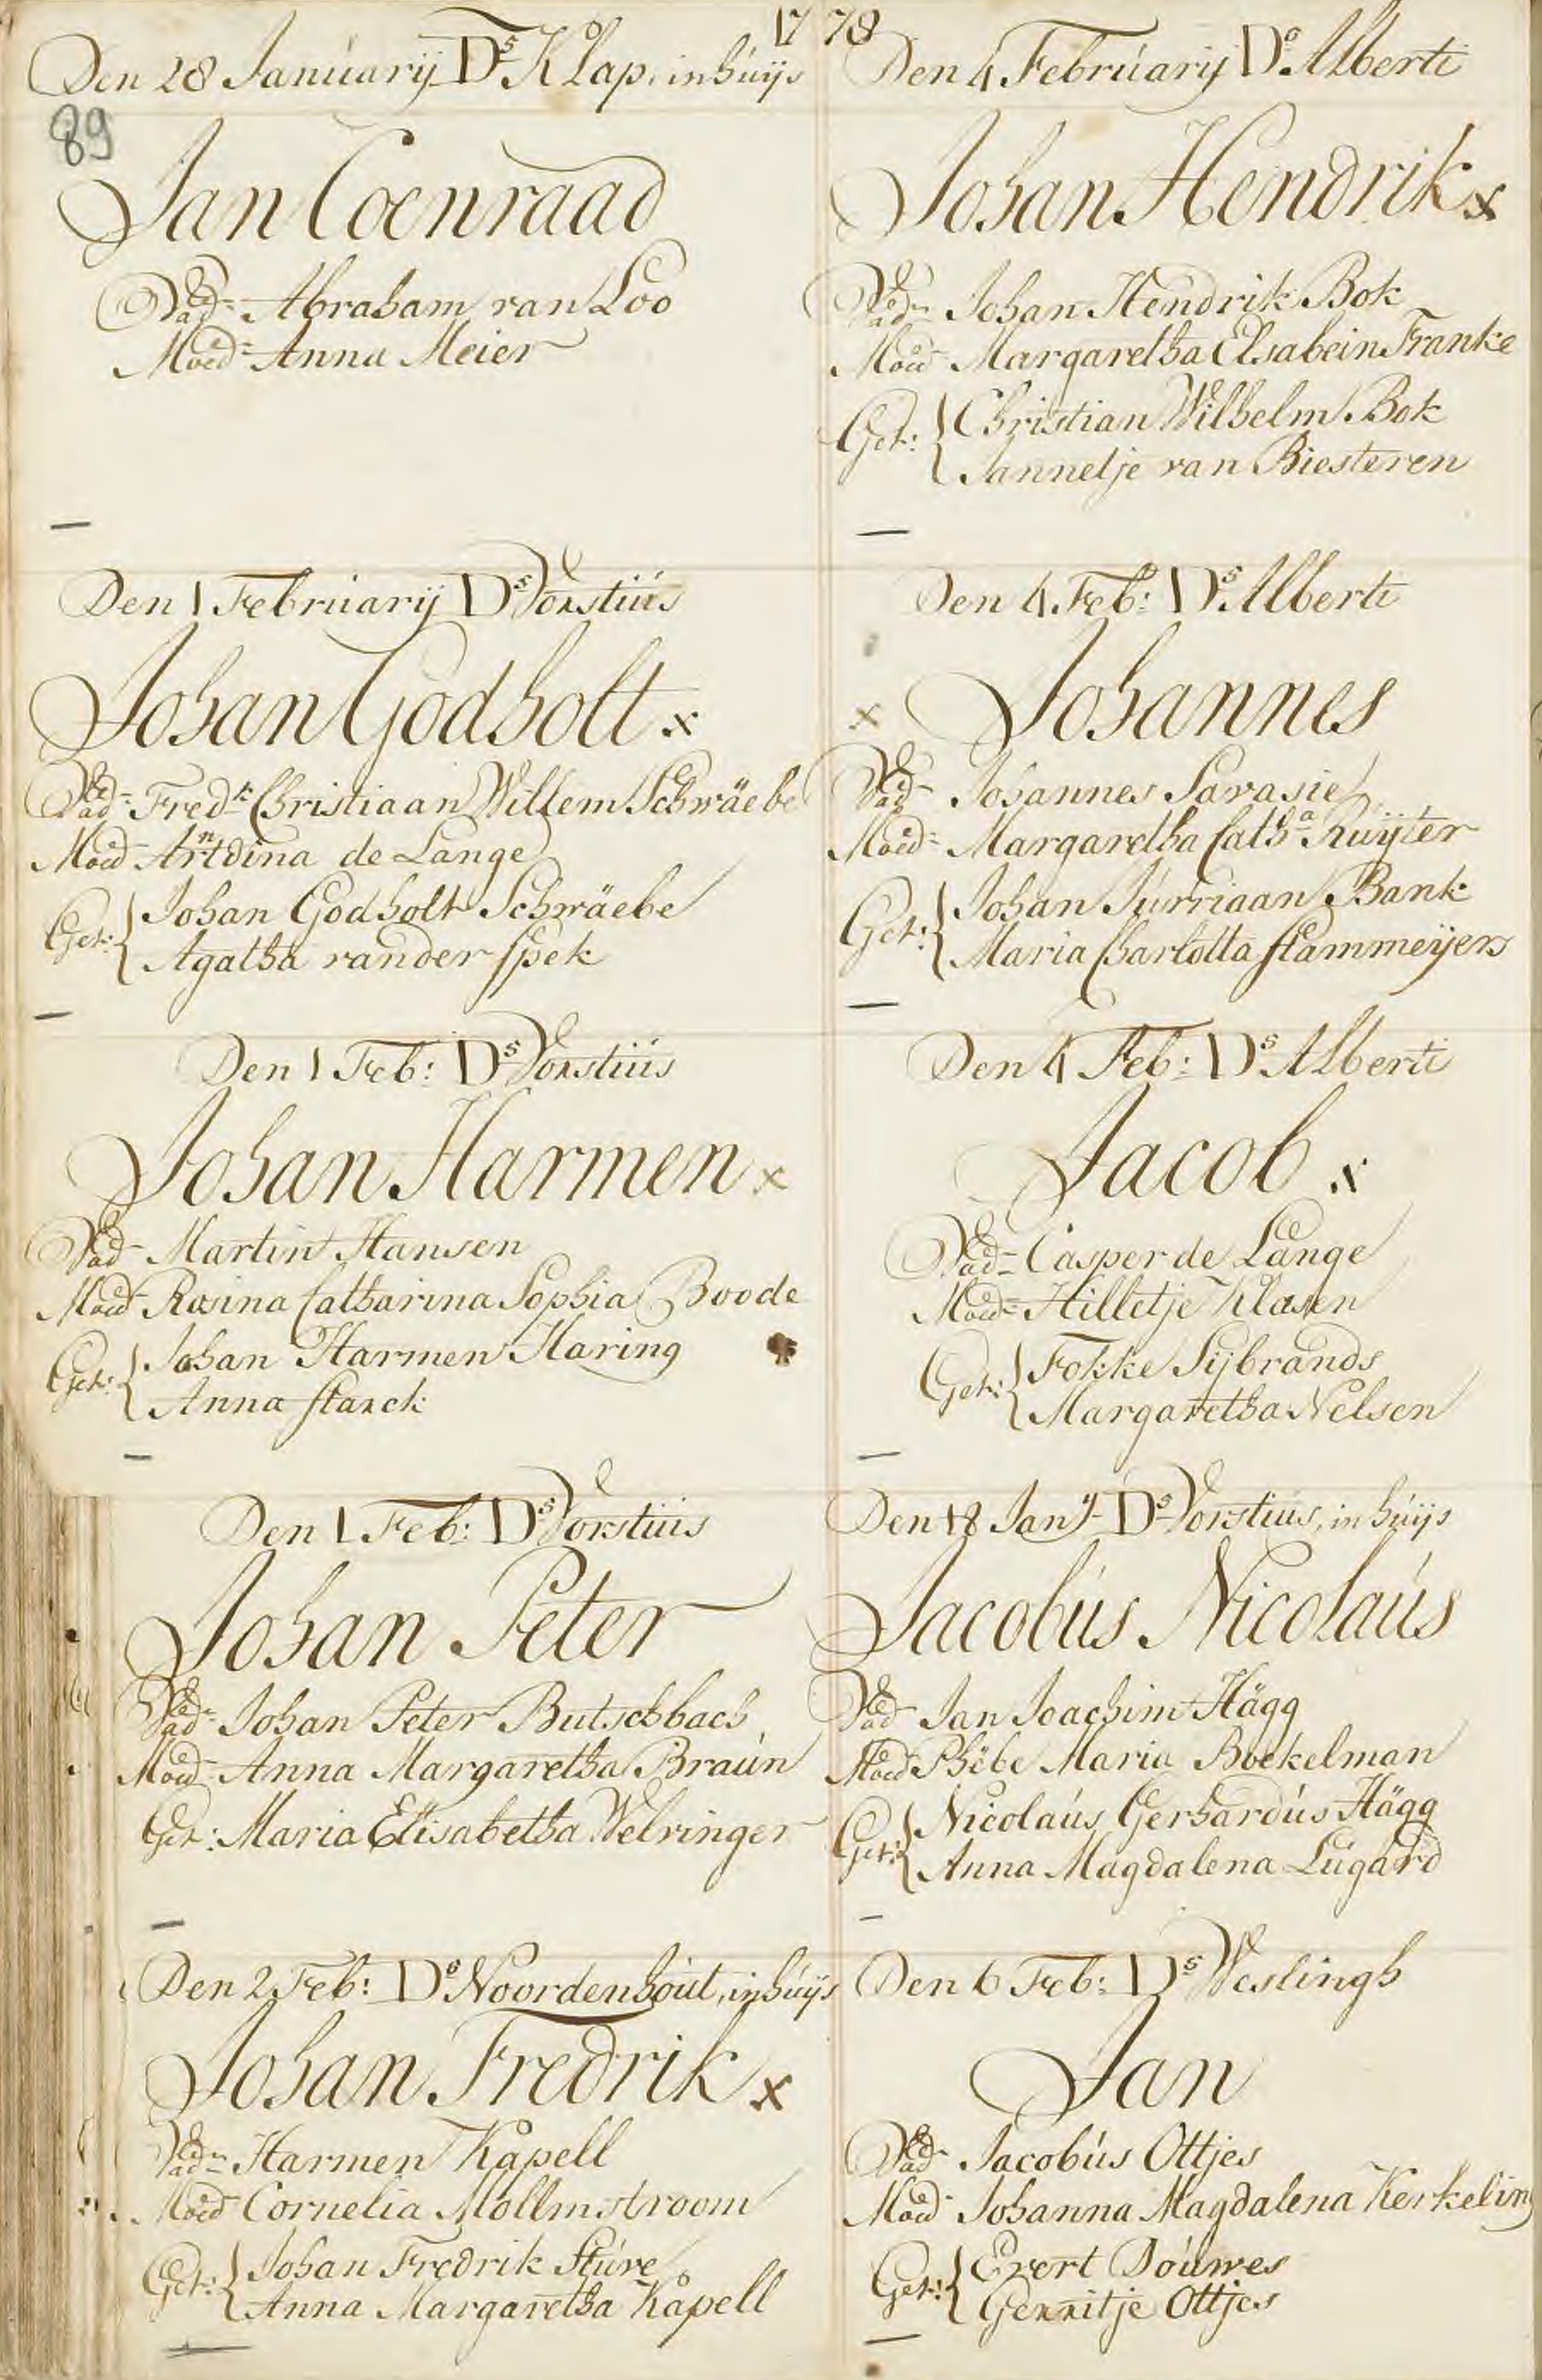 1778
Den 28 Januarij Ds Klap, in huijs
89
Jan Coenraad
Vad= Abraham van Loo
Moed= Anna Meier
Den 1 Februarij Ds Vorstius
Johan Godholt x
Vad= Fredk Christiaan Willem Schwäebe
Moed= Arntdina de Lange
Get: Johan Godholt Schwäebe
Agatha vander Spek
Den 1 Feb: Ds Vorstius
Johan Harmen x
Vad= Martin Hansen
Moed= Rosina Catharina Sophia Boode
Get: Johan Harmen Haring
Anna Starck
Den 1 Feb: Ds Vorstius
Johan Peter
Vad= Johan Peter Butschbach
Moed= Anna Margaretha Braun
Get: Maria Elisabetha Welringer
Den 2 Feb: Ds Noordenhout, in huijs
Johan Fredrik x
Vad= Harmen Kapell
Moed= Cornelia Mollmstroom
Get: Johan Fredrik Sture
Anna Margaretha Kapell
Den 4 Februarij Do Alberti
Johan Hendrik x
Vad= Johan Hendrik Bok
Moed= Margaretha Elsabein Franke
Get: Christian Wilhelm Bok
Jannetje van Biesteren
Den 4 Feb: Ds Alberti
x Johannes
Vad= Johannes Sarasie
Moed= Margaretha Catha Ruijter
Get: Johan Jurriaan Bank
Maria Charlotta Stammeijers
Den 4 Feb: Ds Alberti
Jacob x
Vad= Casper de Lange
Moed= Hilletje Klasen
Get: Fokke Sijbrands
Margaretha Nelsen
Den 18 Janij Ds Vorstius, in huijs
Jacobus Nicolaus
Vad= Jan Joachim Hägg
Moed= Phëbe Maria Boekelman
Get: Nicolaus Gerhardus Hägg
Anna Magdalena Lugard
Den 6 Feb: Ds Weslingh
Jan
Vad= Jacobus Ottjes
Moed= Johanna Magdalena Kerkeling
Get: Evert Douwes
Gerritje Ottjes